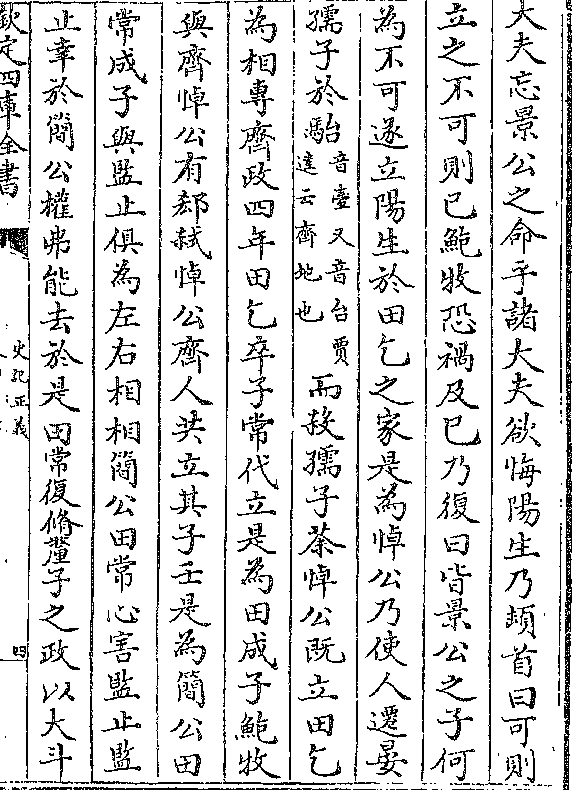 大夫忘景公之命乎諸大夫欲悔陽生乃頓首曰可則
立之不可則已鮑牧恐禍及已乃復曰皆景公之子何
為不可遂立陽生於田乞之家是為悼公乃使人遷晏
孺子於駘音臺又音台賈逵云齊地也而殺孺子荼悼公既立田乞
為相專齊政四年田乞卒子常代立是為田成子鮑牧
與齊悼公有郄弑悼公齊人共立其子壬是為簡公田
常成子與監止俱為左右相相簡公田常心害監止監
止幸於簡公權弗能去於是田常復脩釐子之政以大斗
欽定四庫全書
史記正義
四